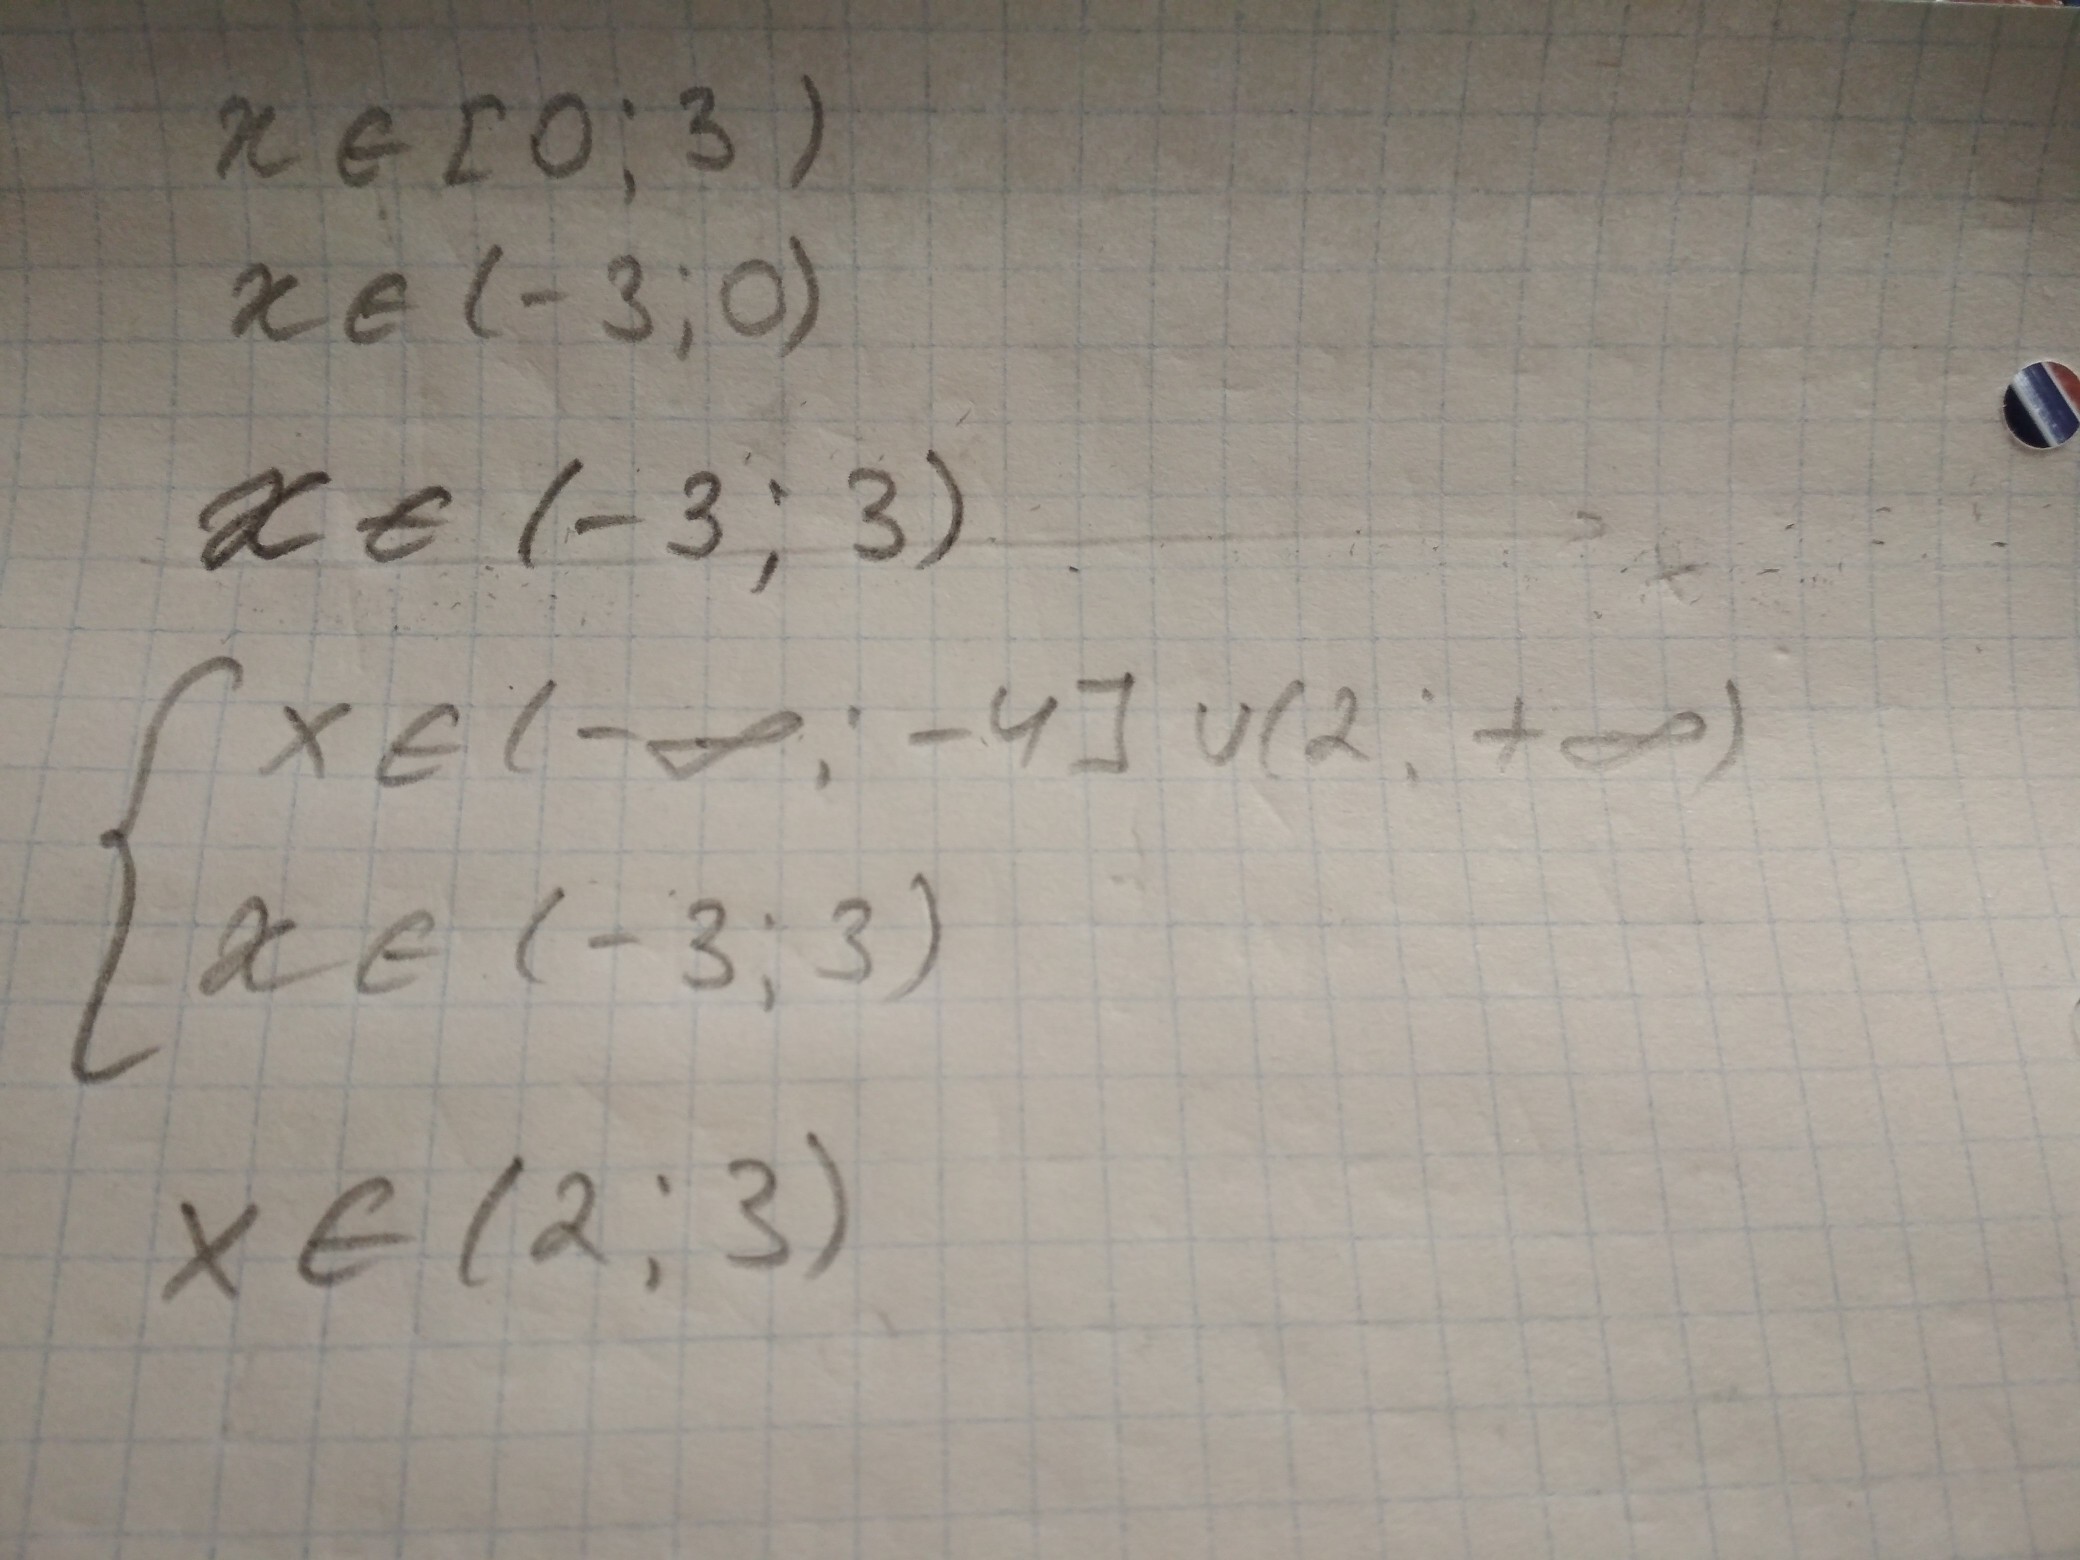 x ∈ [0; 3)
x ∈ (-3; 0)
x ∈ (-3; 3)
{ x ∈ (-∞; -4] ∪ (2; +∞)
x ∈ (-3; 3)
x ∈ (2; 3)